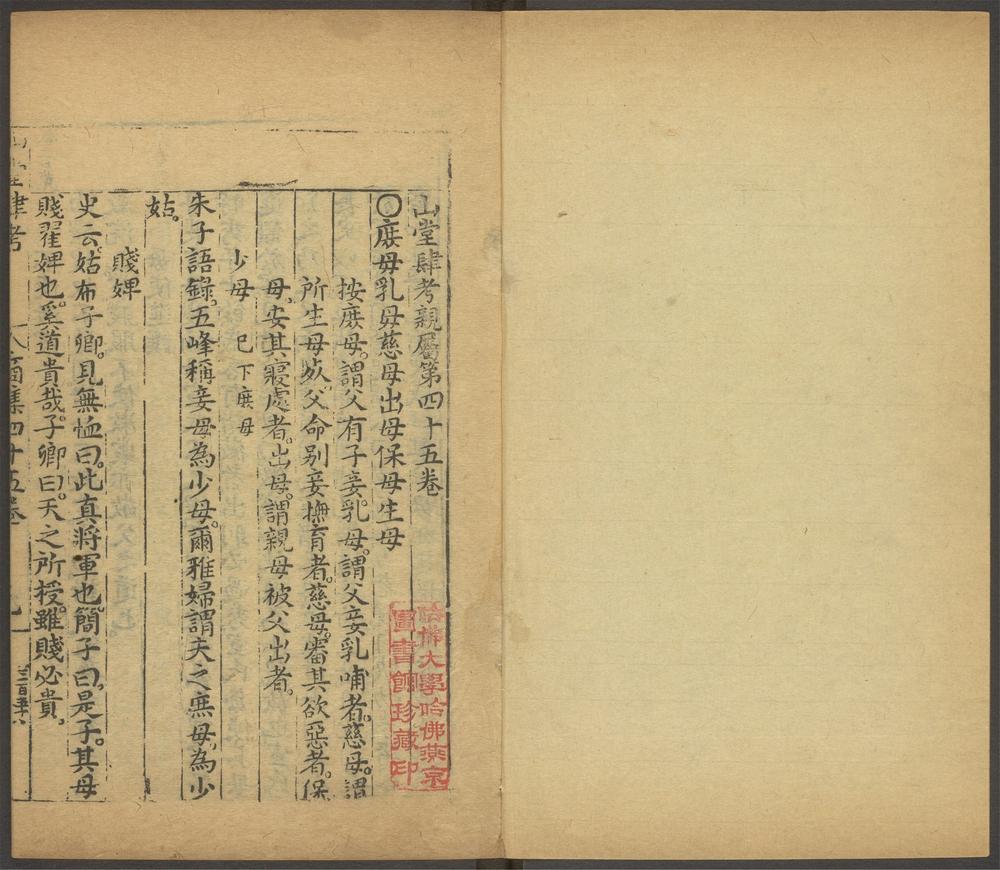 山堂肆考親屬第四十五卷
〇庶母乳母慈母出母保母生母
按庶母。謂父有子妾。乳母。謂父妾乳哺者。慈母。謂
所生母死。父命別妾撫育者。慈母。審其欲惡者。保
母。安其寢處者。出母。謂親母被父出者。
少母 已下庶母
朱子語錄。五峰稱妾母為少母。爾雅婦謂夫之庶母。為少
姑。
賤婢
史云。姑布子卿。見無恤曰。此真將軍也。簡子曰。是子。其母
賤翟婢也。奚道貴哉。子卿曰。天之所授。雖賤必貴。
堂肆考
商集四十五卷
一
三百五十八
哈佛大學哈佛燕京
圖書館珍藏印